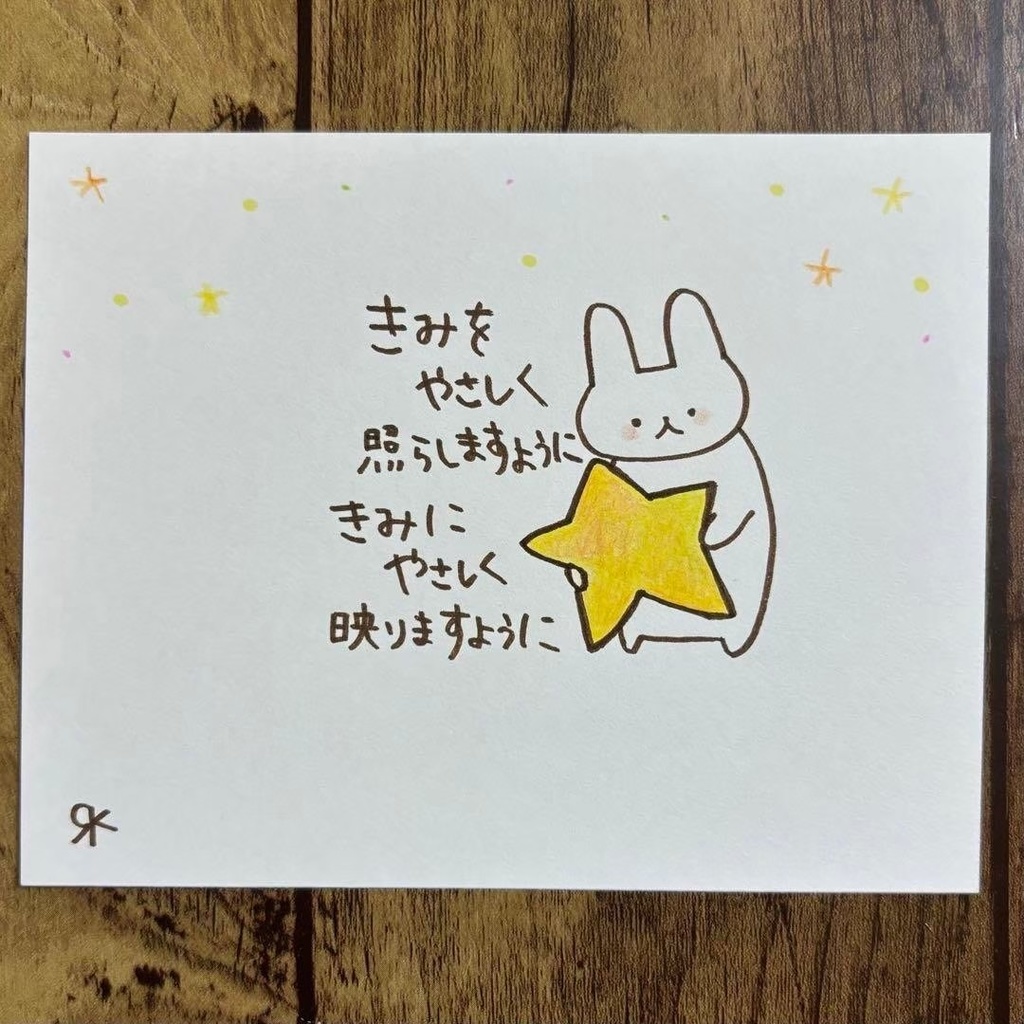 きみを
やさしく
照らしますように
きみに
やさしく
映りますように